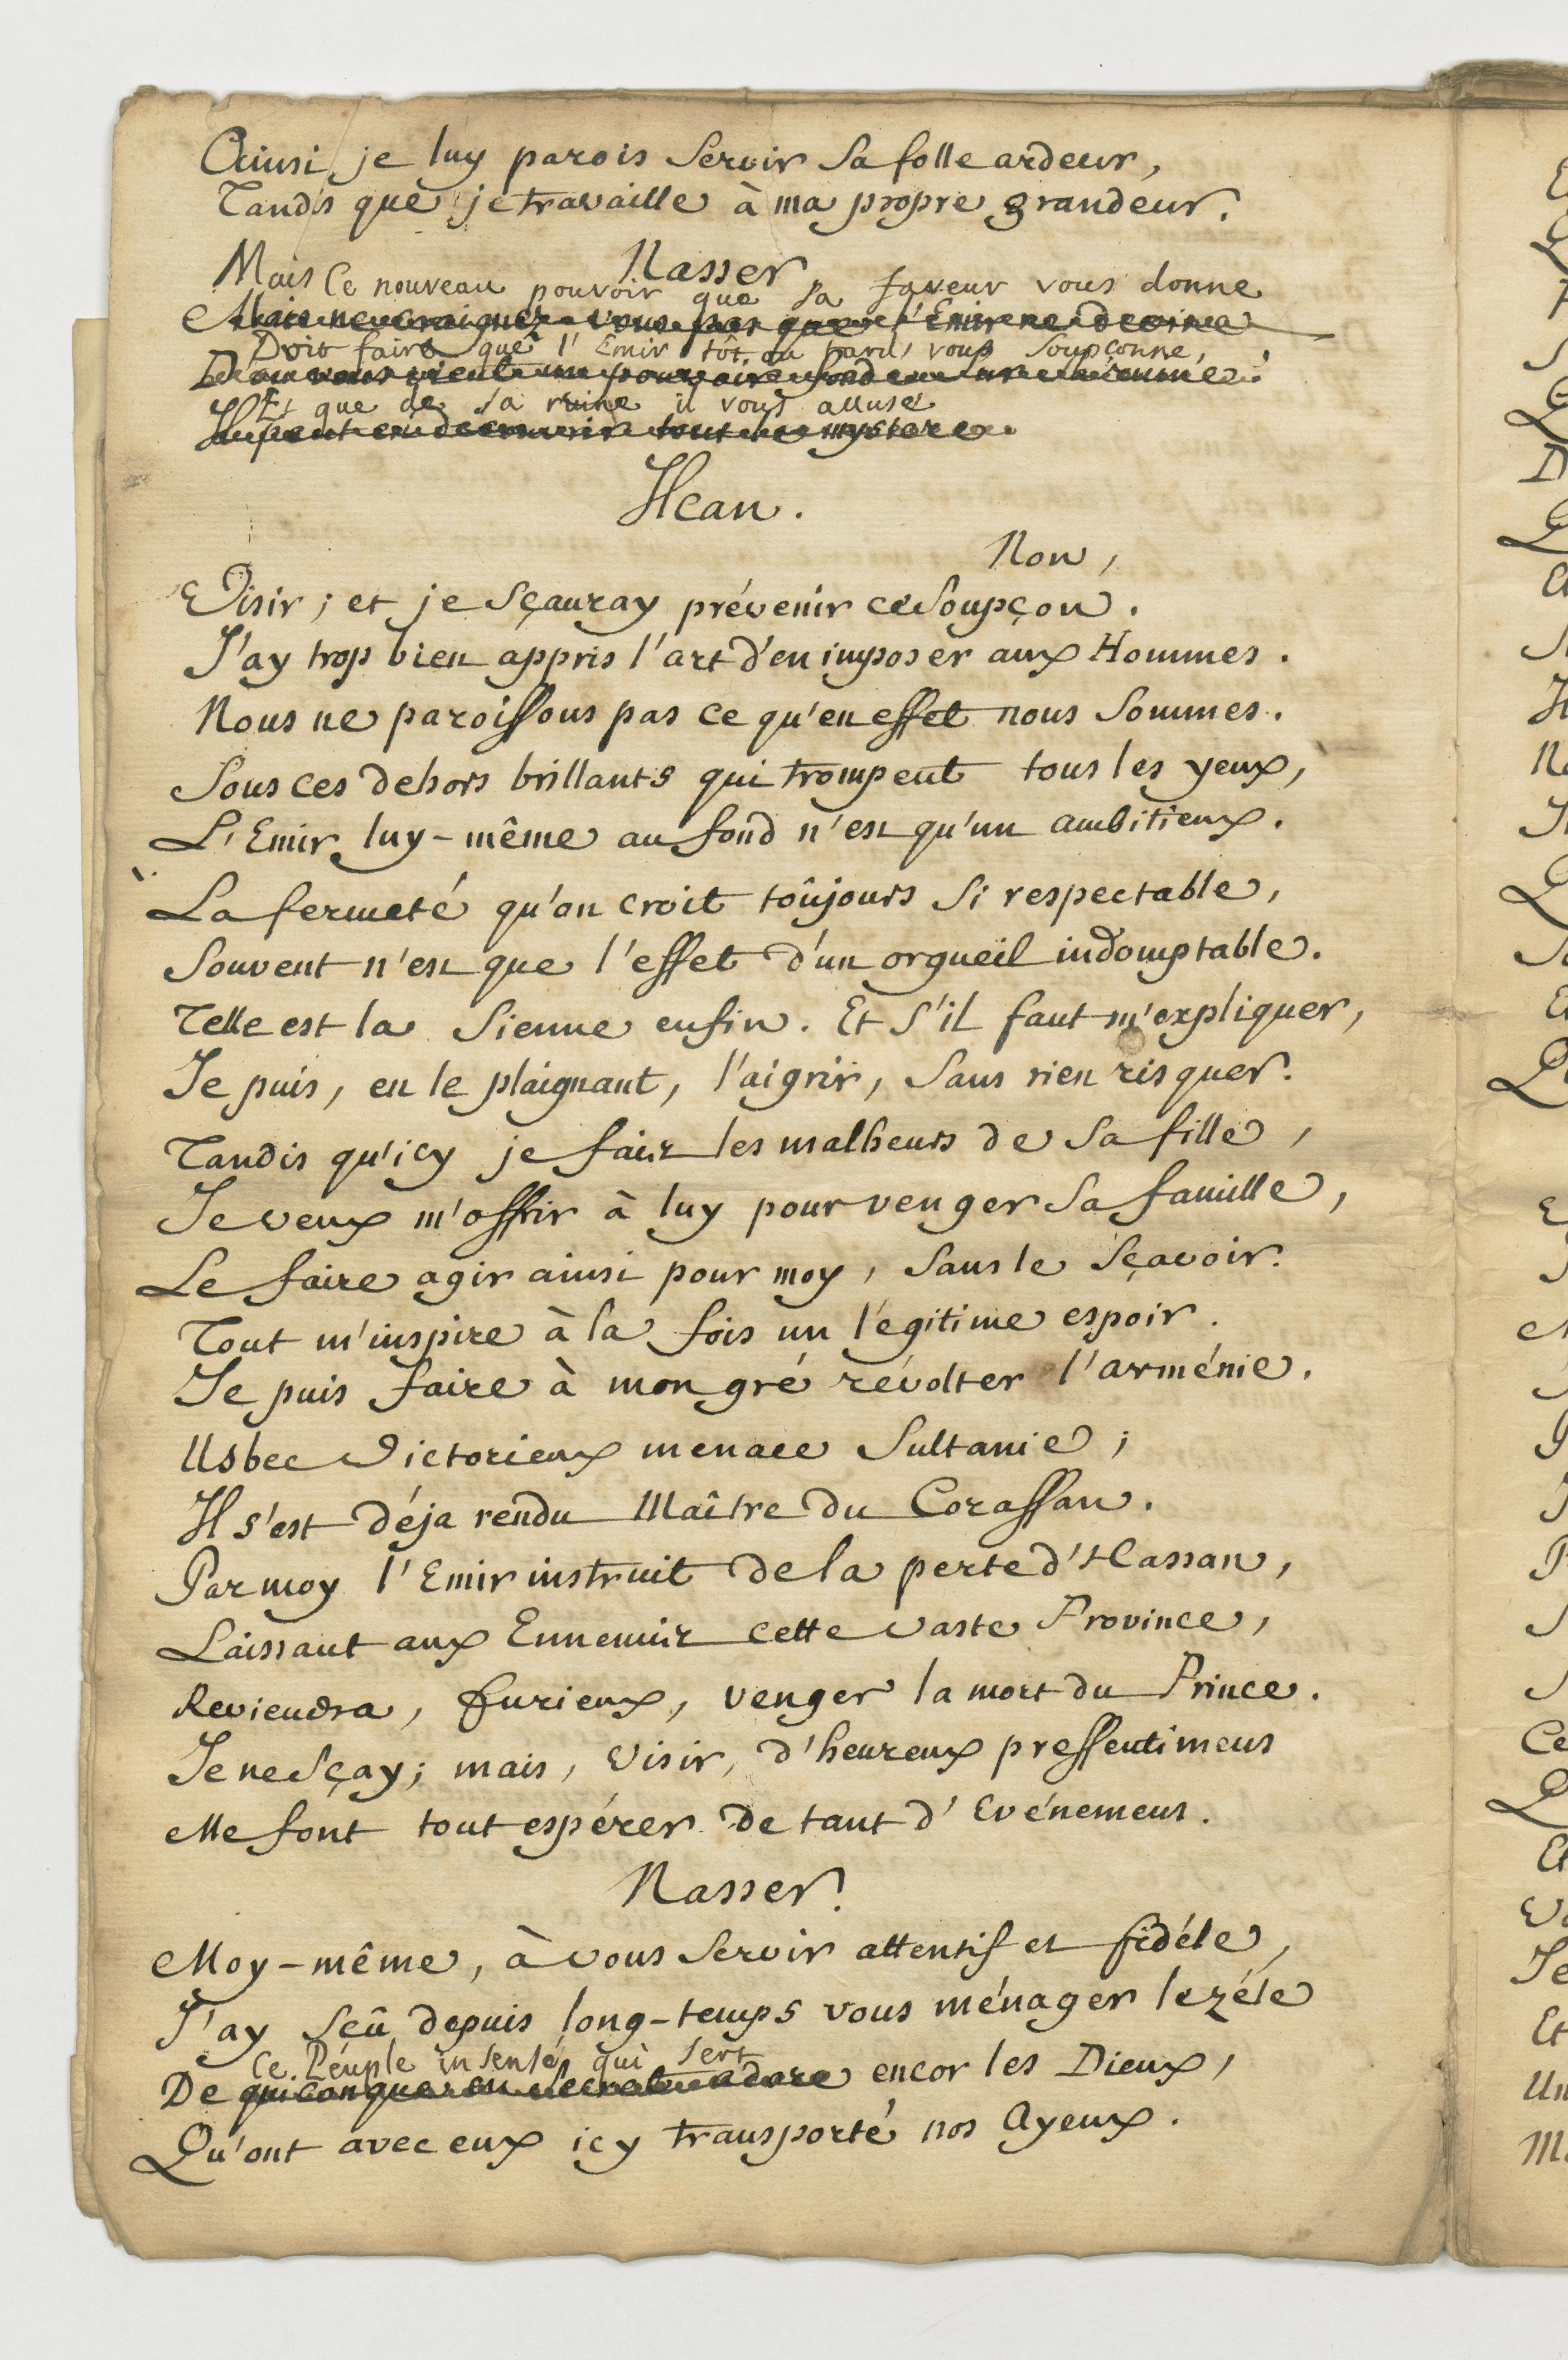 Ainsi je luy parois Servir Sa folle ardeur,
Tandis que je travaille à ma propre grandeur.
Nasser
Mais Ce nouveau pouvoir que sa faveur vous donne
Mais ne craignez-vous pas que l'Emir ne devine
Doit faire que l'Emir tôt, ou tard, vous Soupçonne,
D'où vous vient un pouvoir fondé sur sa ruine?
Et que de sa ruine il vous accuse
Il peut en découvrir tout le mystere.
Ilcan.
Non,
Visir; et je Sçauray prévenir ce Soupçon.
J'ay trop bien appris l'art d'en imposer aux Hommes.
Nous ne paroissons pas ce qu'en effet nous Sommes.
Sous ces dehors brillants qui trompent tous les yeux,
L'Emir luy-même au fond n'est qu'un ambitieux.
La fermeté qu'on croit toûjours Si respectable,
Souvent n'est que l'effet d'un orgueil indomptable.
Telle est la Sienne enfin. Et S'il faut m'expliquer,
Je puis, en le plaignant, l'aigrir, Sans rien risquer.
Tandis qu'icy je fais les malheurs de Sa fille,
Je veux m'offrir à luy pour venger Sa famille,
Le faire agir ainsi pour moy, Sans le Sçavoir.
Tout m'inspire à la fois un légitime espoir.
Je puis faire à mon gré révolter l'arménie.
Usbec Victorieux menace Sultanie;
Il s'est déja rendu Maître du Corassan.
Par moy l'Emir instruit de la perte d'Hassan,
Laissant aux Ennemis cette vaste Province,
Reviendra, furieux, venger la mort du Prince.
Je ne Sçay; mais, Visir, d'heureux pressentimens
Me font tout espérer de tant d'Evénemens.
Nasser.
Moy-même, à vous Servir attentif et fidéle,
J'ay Sçû depuis long-temps vous ménager le zéle
Ce Peuple insensé qui sert
De quiconque en secret adore encor les Dieux,
Qu'ont avec eux icy transporté nos Ayeux.